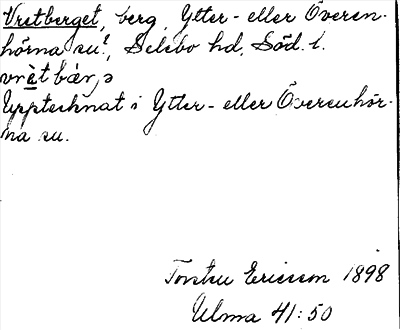 Vretberget, berg, Ytter- eller Överen-
hörna sn?, Selebo hd, Söd. l.
vrètbár,ə
Upptecknat i Ytter- eller Överenhör-
na sn.
Torsten Ericsson 1898
Ulma 41:50